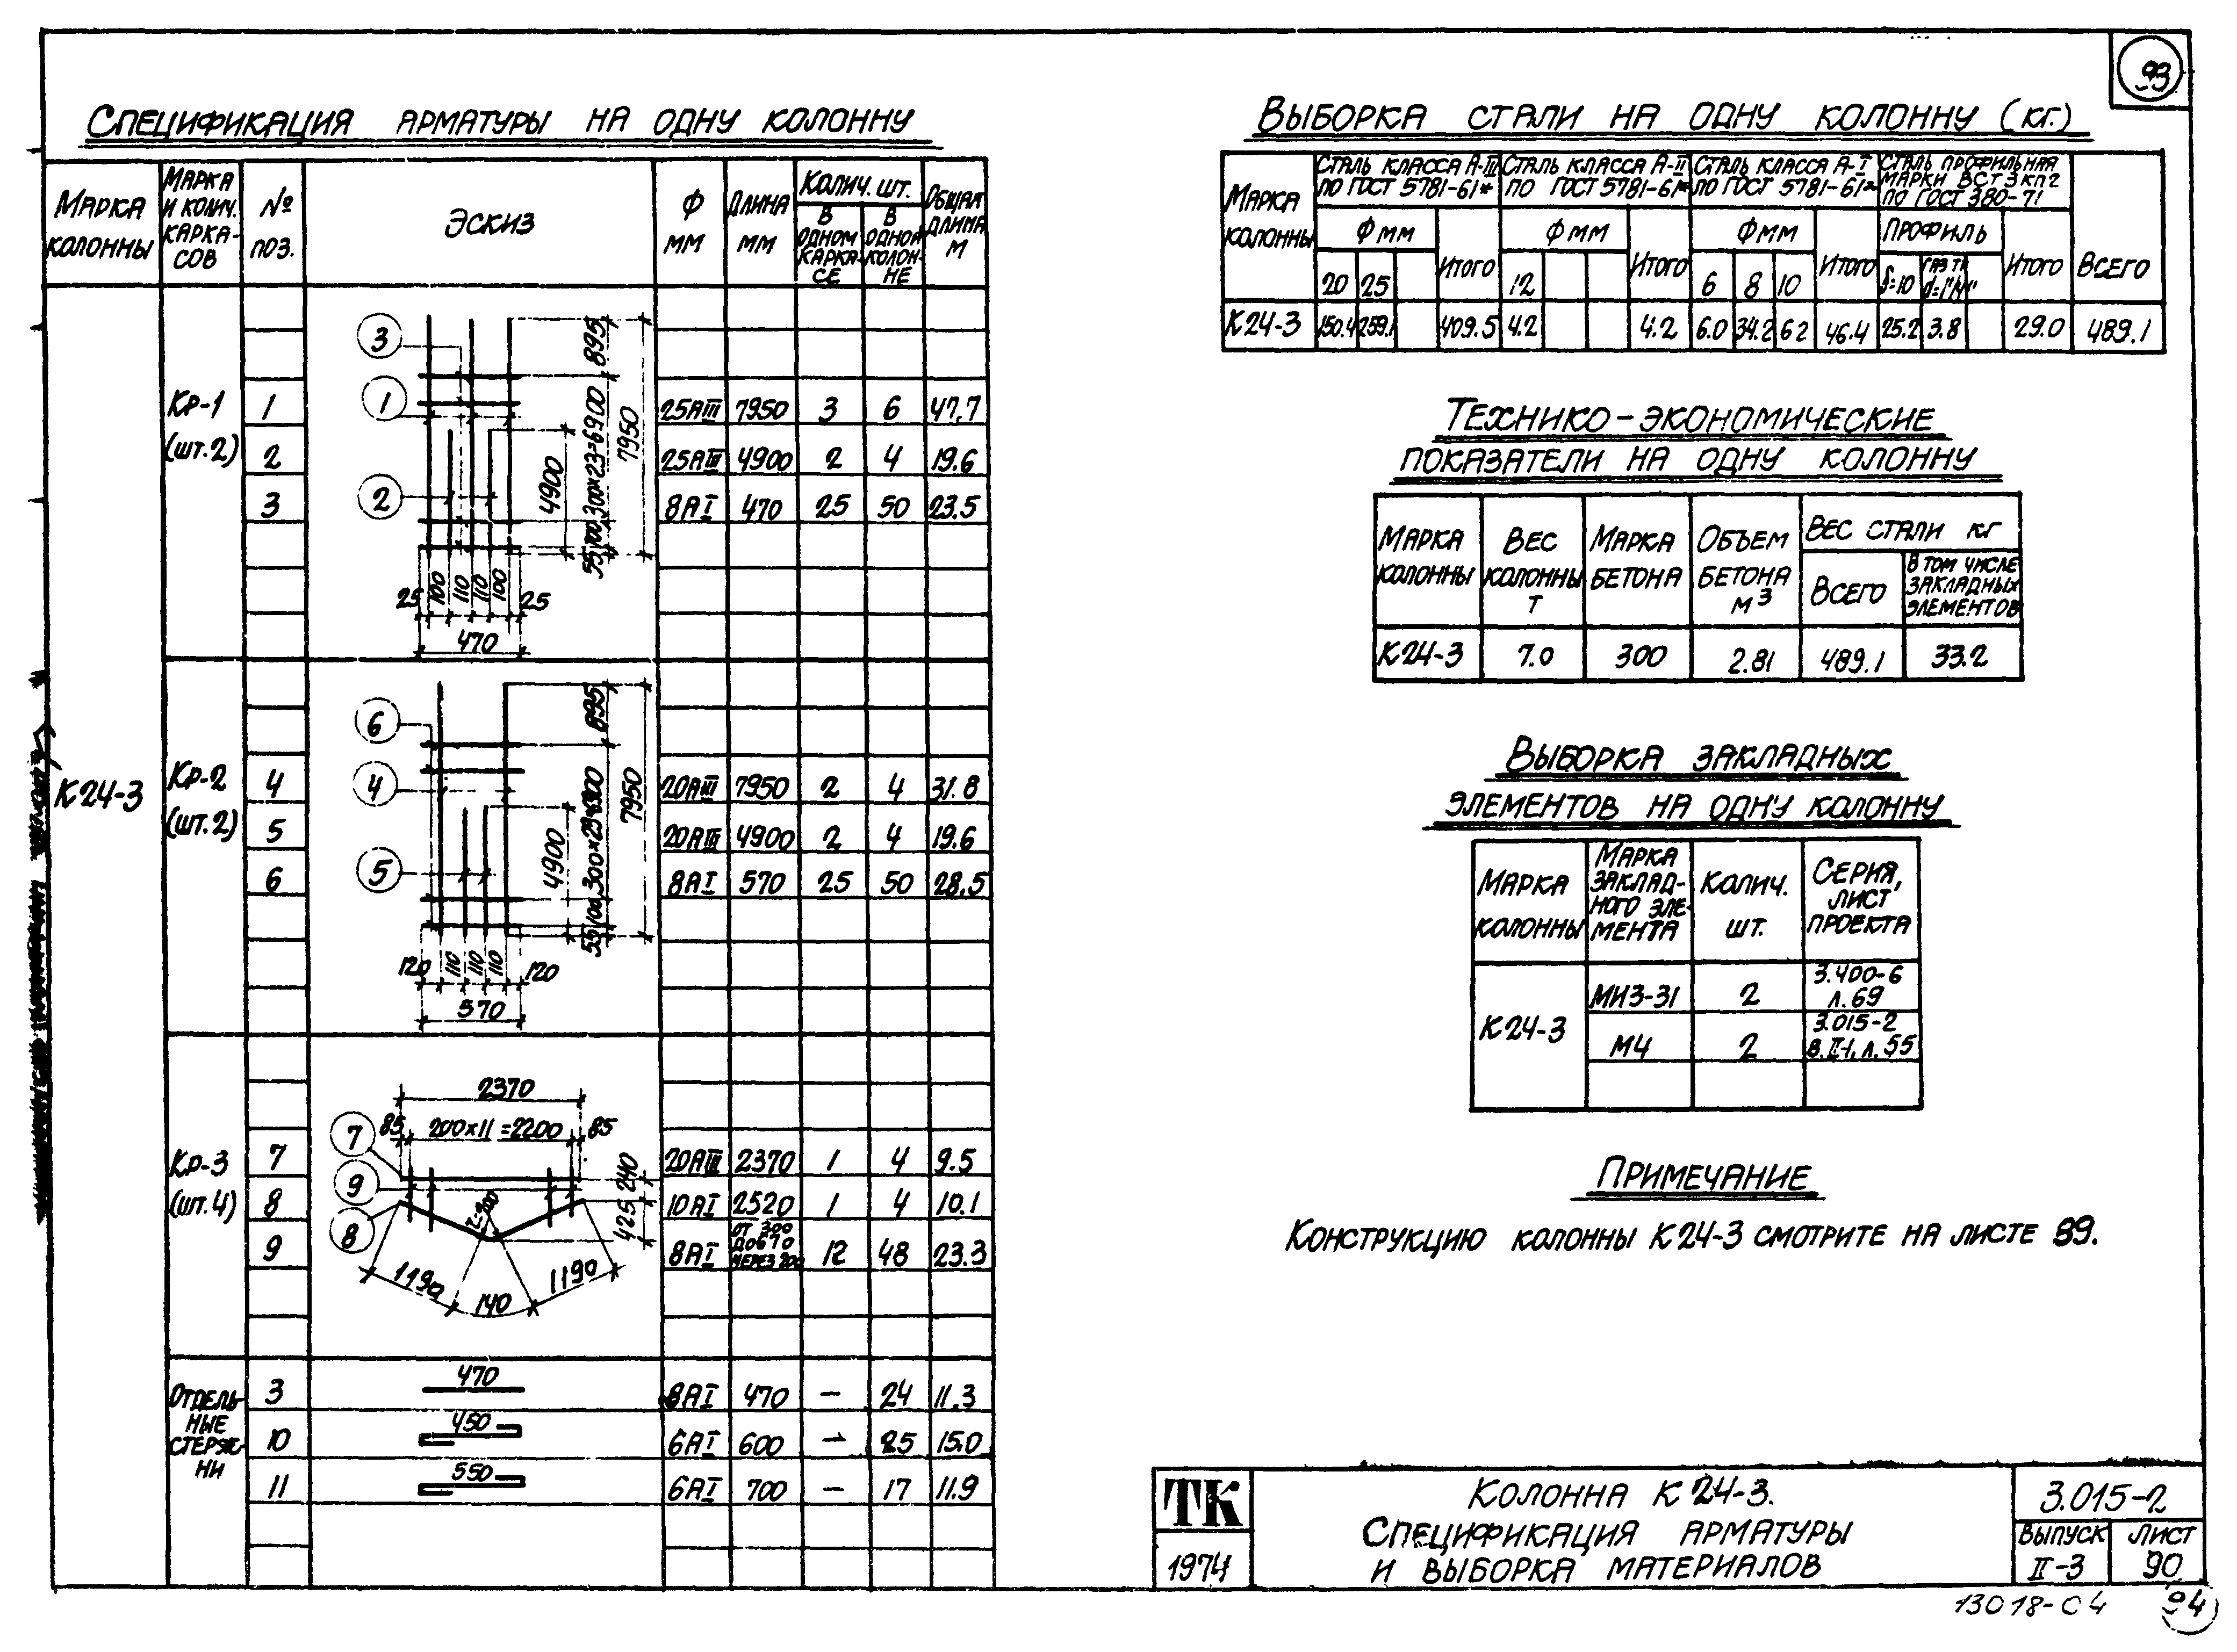 93
Спецификация арматуры на одну колонну
Марка колонны
Марка и колич. каркасов
№ поз.
Эскиз
Ф мм
Длина мм
Колич. шт.
в одном каркасе
в одной колонне
Общая длина м
К24-3
Кр-1 (шт.2)
1 25АIII 7950 3 6 47,7
2 25АIII 4900 2 4 19.6
3 8АI 470 25 50 23.5
3
1
2
895
300×23=6900
7950
4900
100
55
25 100 110 110 100 25
470
Кр-2 (шт.2)
4 20АIII 7950 2 4 31.8
5 20АIII 4900 2 4 19.6
6 8АI 570 25 50 28.5
6
4
5
895
7950
4900
100
55
120 110 110 110 120
570
Кр-3 (шт.4)
7 20АIII 2370 1 4 9.5
8 10АI 2520 1 4 10.1
9 8АI от 300 до 670 через 200 12 48 23.3
2370
85 200×11=2200 85
7
9
8
240
425
1190 140 1190
Отдельные стержни
3 470 8АI 470 – 24 11.3
10 450 6АI 600 – 25 15.0
11 550 6АI 700 – 17 11.9
Выборка стали на одну колонну (кг.)
Марка колонны
Сталь класса А-III по ГОСТ 5781-61*
Сталь класса А-II по ГОСТ 5781-61*
Сталь класса А-I по ГОСТ 5781-61*
Сталь профильная марки ВСТ3кп2 по ГОСТ 380-71
Всего
Фмм Итого Фмм Итого Фмм Итого Профиль Итого
20 25 12 6 8 10 δ=10
К24-3 150.4 259.1 409.5 4.2 4.2 6.0 34.2 6.2 46.4 25.2 3.8 29.0 489.1
Технико-экономические
показатели на одну колонну
Марка колонны
Вес колонны т
Марка бетона
Объем бетона м³
Вес стали кг
Всего
В том числе закладных элементов
К24-3 7.0 300 2.81 489.1 33.2
Выборка закладных
элементов на одну колонну
Марка колонны
Марка закладного элемента
Колич. шт.
Серия, лист проекта
К24-3
МИ3-31 2 3.400-6 л.69
М4 2 3.015-2 в.II-1, л.55
Примечание
Конструкцию колонны К24-3 смотрите на листе 89.
ТК
1974
Колонна К24-3.
Спецификация арматуры
и выборка материалов
3.015-2
Выпуск II-3
Лист 90
13018-04
94